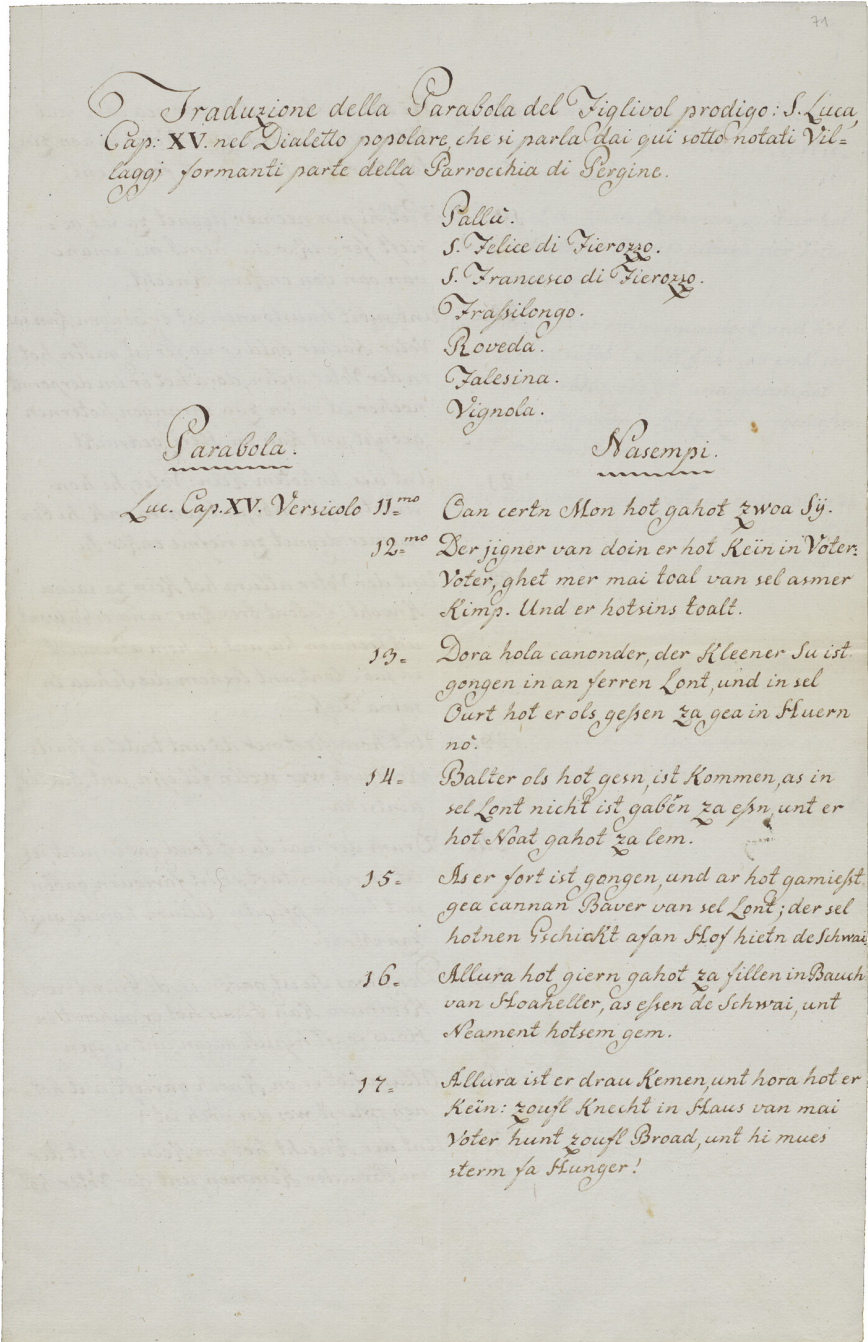 71
Traduzione della Parabola del Figlivol prodigo: S. Luca,
Cap: XV. nel Dialetto popolare, che si parla dai qui sotto notati Vil=
laggj formanti parte della Parrocchia di Pergine.
Pallù.
S. Felice di Fierozzo.
S. Francesco di Fierozzo.
Fraßilongo.
Roveda.
Falesina.
Vignola.
Parabola. Nasempi.
Luc. Cap. XV. Versicolo 11=mo Oan certn Mon hot gahot zwoa Sÿ.
12=mo Der jigner van doin er hot Keïn in Voter:
Voter, ghet mer mai toal van sel asmer
Kimp. Und er hotsins toalt.
13= Dora hola canonder, der Kleener Su ist
gongen in an ferren Lont, und in sel
Ourt hot er ols geßen za gea in Huern
nò.
14= Balter ols hot gesn, ist Kommen, as in
sel Lont nicht ist gabên za eßn, unt er
hot Noat gahot za lem.
15= As er fort ist gongen, und ar hot gamießt
gea cannan Baver van sel Lont; der sel
hotnen Gschickt afan Hof hietn de Schwai
16= Allura hot giern gahot za fillen in Bauch
van Hoakeller, as eßen de Schwai, unt
Neament hotsem gem.
17= Allura ist er drau Kemen, unt hora hot er
Keïn: zoufl Knecht in Haus van mai
Voter hunt zoufl Broad, unt hi mues
sterm fa Hunger!